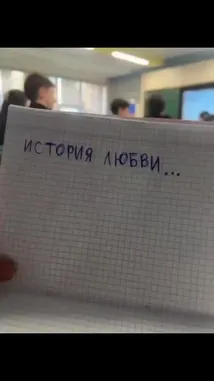 ИСТОРИЯ ЛЮБВИ...